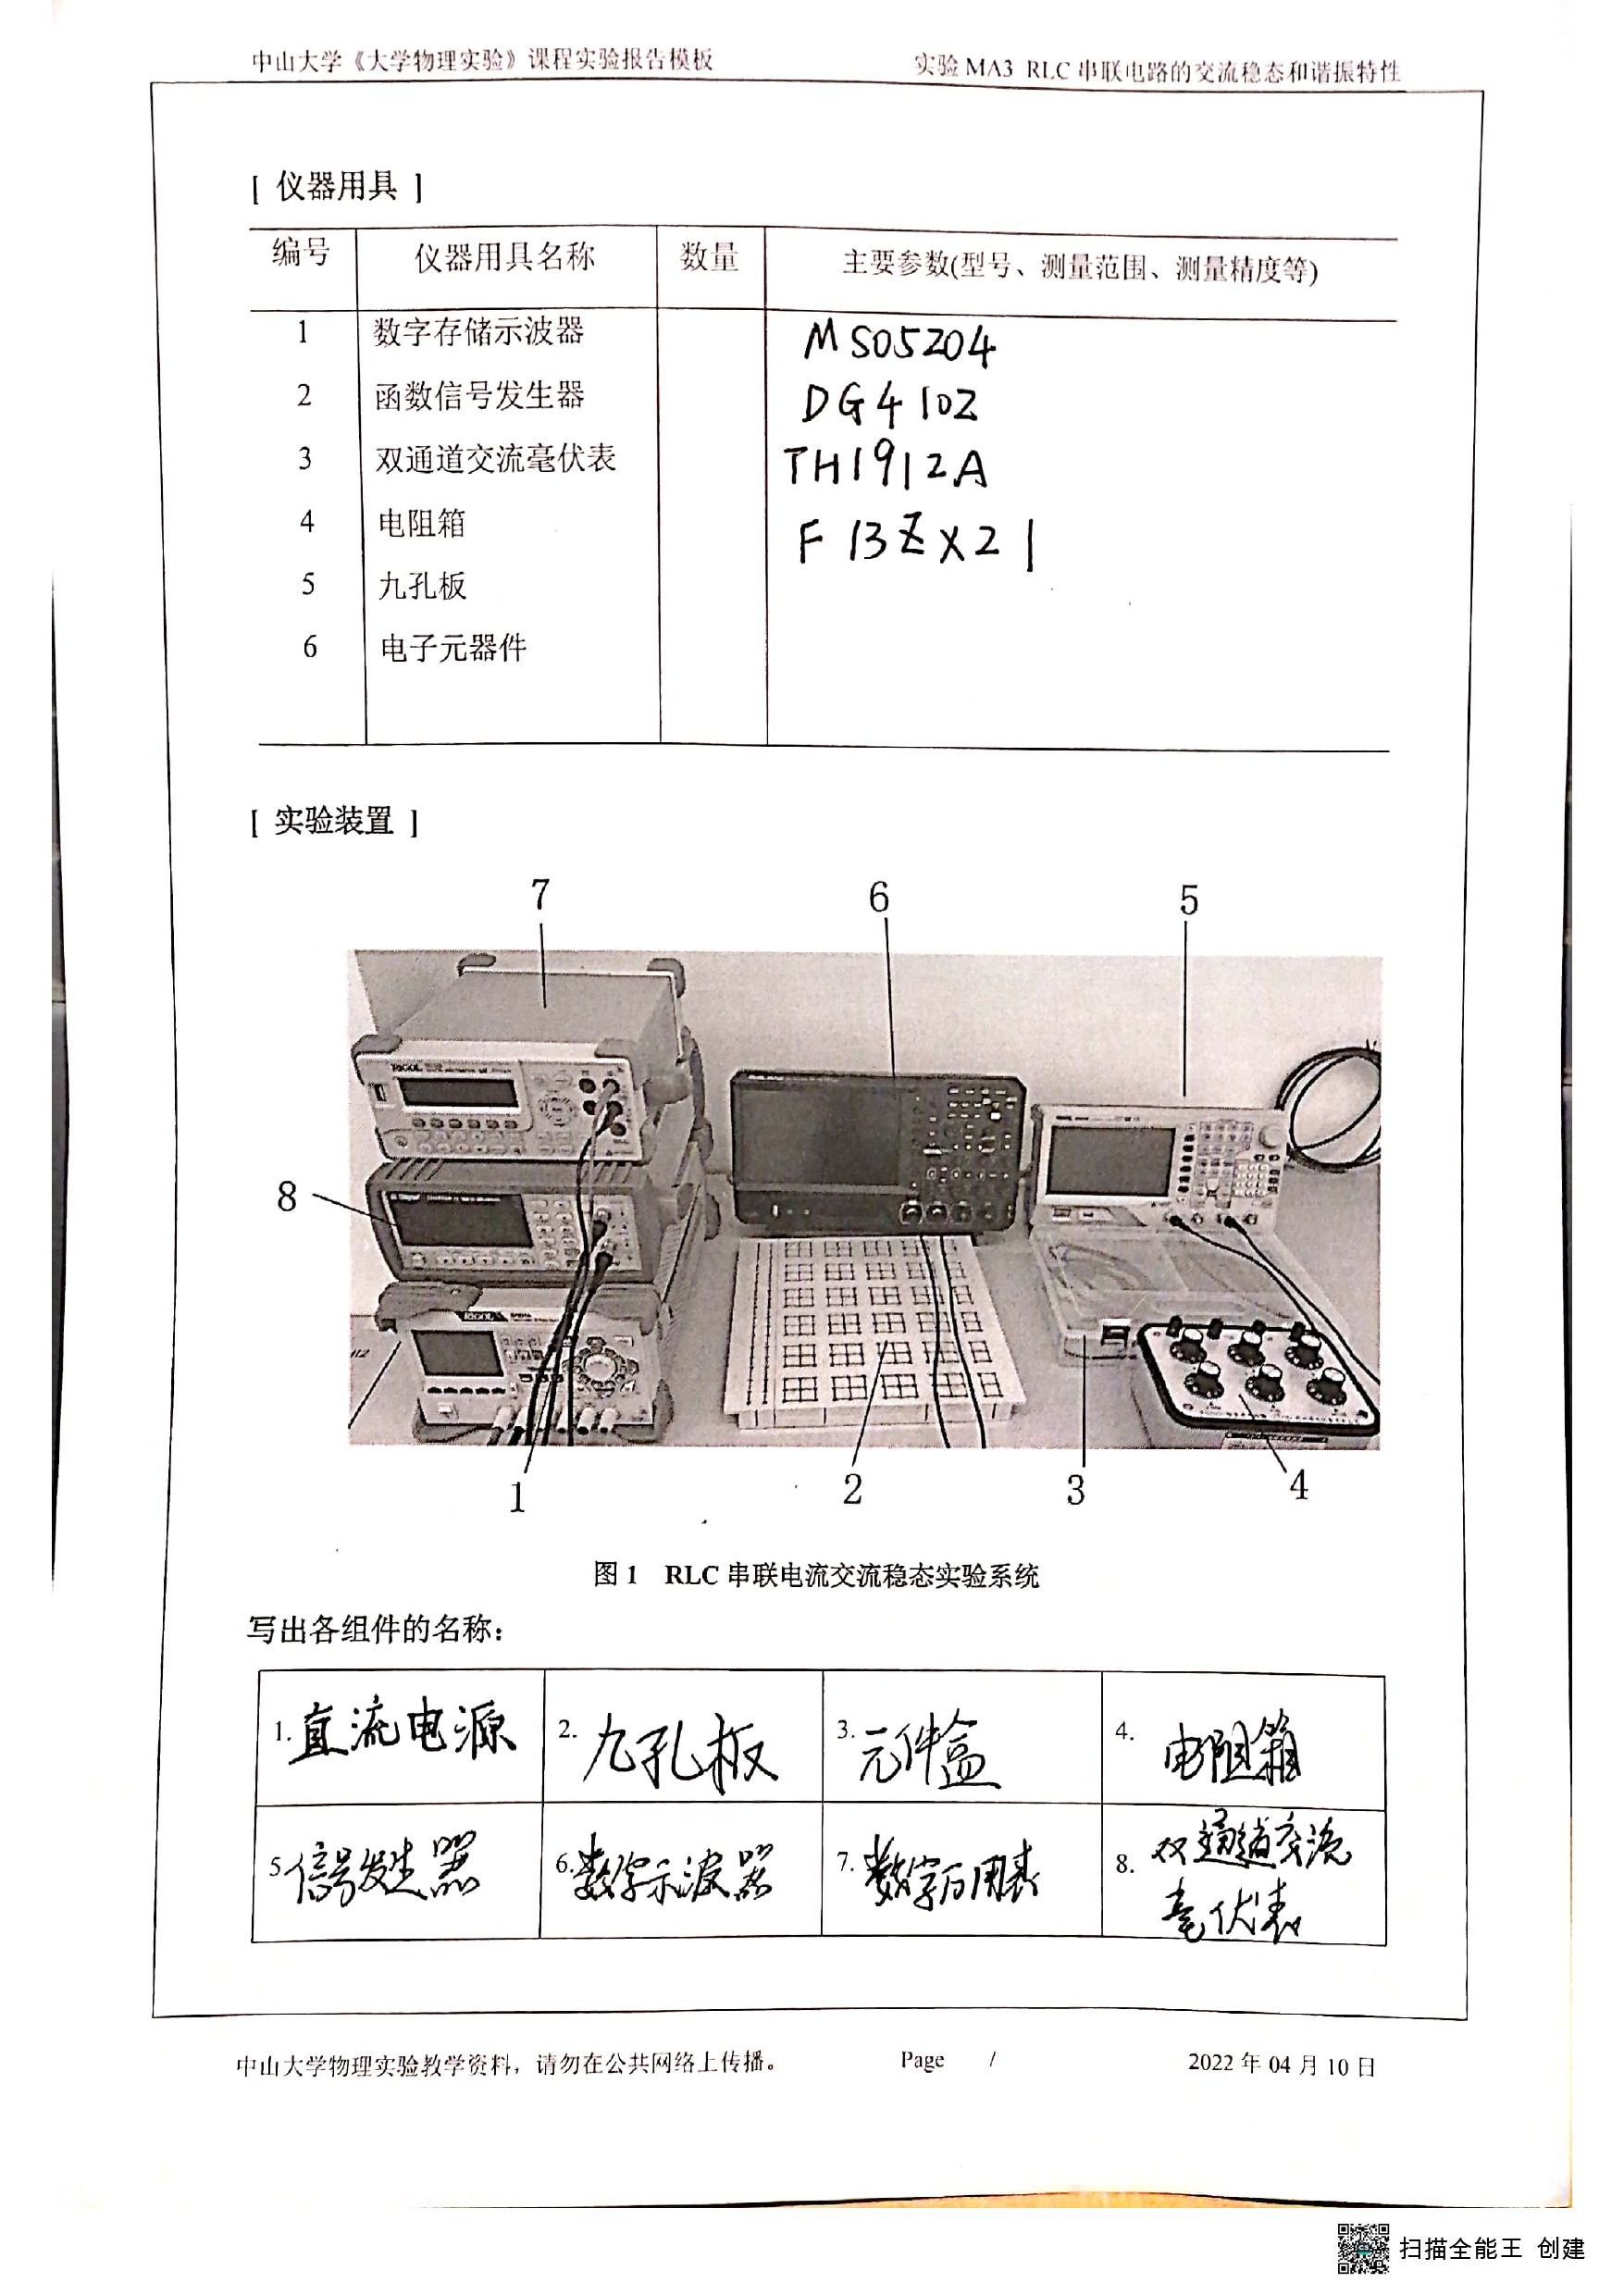 中山大学《大学物理实验》课程实验报告模板 实验 MA3 RLC 串联电路的交流稳态和谐振特性
[ 仪器用具 ]
编号 仪器用具名称 数量 主要参数(型号、测量范围、测量精度等)
1 数字存储示波器 MSO5204
2 函数信号发生器 DG4102
3 双通道交流毫伏表 TH1912A
4 电阻箱 F13ZX21
5 九孔板
6 电子元器件
[ 实验装置 ]
7 6 5
RIGOL
8
RIGOL
1 2 3 4
图 1 RLC 串联电流交流稳态实验系统
写出各组件的名称：
1. 直流电源 2. 九孔板 3. 元件盒 4. 电阻箱
5. 信号发生器 6. 数字示波器 7. 数字万用表 8. 双通道交流
毫伏表
中山大学物理实验教学资料，请勿在公共网络上传播。 Page / 2022 年 04 月 10 日
扫描全能王 创建